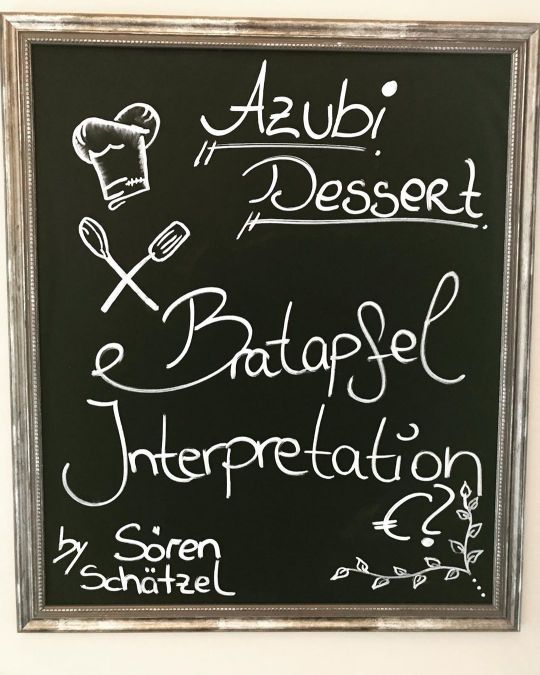 Azubi
Dessert
Bratapfel
Interpretation
€?
by Sören
Schätzel